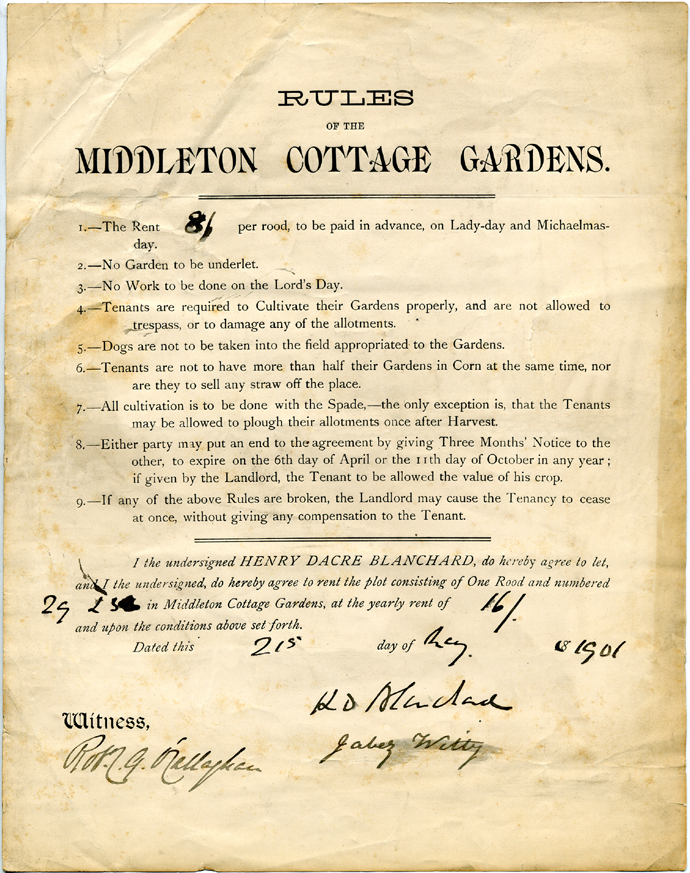 RULES
OF THE
MIDDLETON COTTAGE GARDENS.
1.—The Rent 8/ per rood, to be paid in advance, on Lady-day and Michaelmas-
day.
2.—No Garden to be underlet.
3.—No Work to be done on the Lord's Day.
4.—Tenants are required to Cultivate their Gardens properly, and are not allowed to
trespass, or to damage any of the allotments.
5.—Dogs are not to be taken into the field appropriated to the Gardens.
6.—Tenants are not to have more than half their Gardens in Corn at the same time, nor
are they to sell any straw off the place.
7.—All cultivation is to be done with the Spade,—the only exception is, that the Tenants
may be allowed to plough their allotments once after Harvest.
8.—Either party may put an end to the agreement by giving Three Months' Notice to the
other, to expire on the 6th day of April or the 11th day of October in any year;
if given by the Landlord, the Tenant to be allowed the value of his crop.
9.—If any of the above Rules are broken, the Landlord may cause the Tenancy to cease
at once, without giving any compensation to the Tenant.
I the undersigned HENRY DACRE BLANCHARD, do hereby agree to let,
and I the undersigned, do hereby agree to rent the plot consisting of One Rood and numbered
29 in Middleton Cottage Gardens, at the yearly rent of 16/.
and upon the conditions above set forth.
Dated this 21s day of May. 1901
H D Blanchard
Witness,
Jabez Witty
Robt. G. O'Callaghan